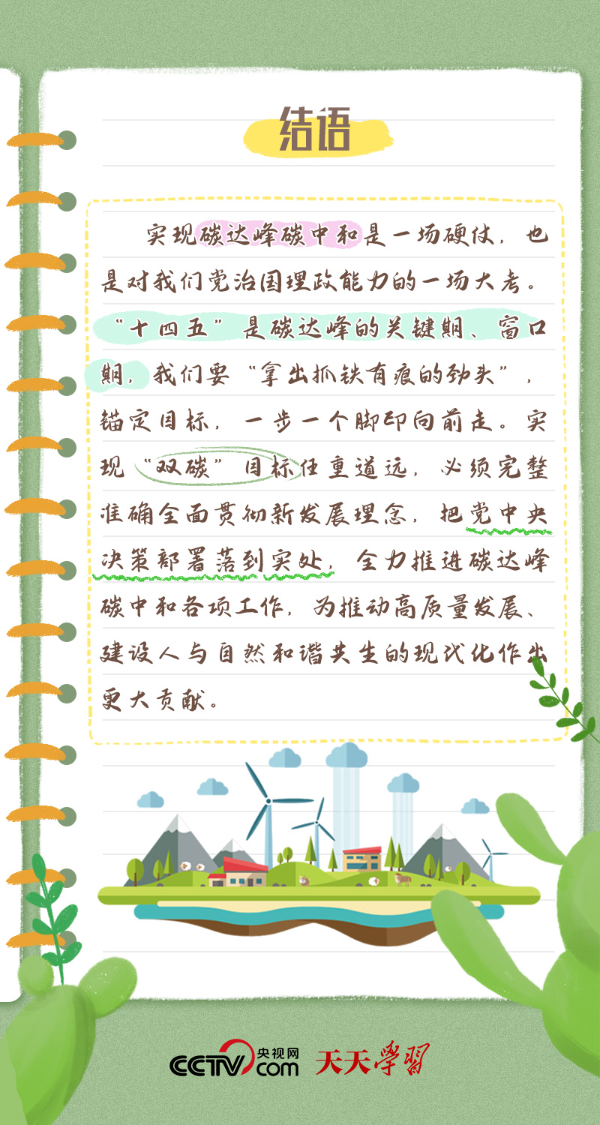 结语
实现碳达峰碳中和是一场硬仗，也
是对我们党治国理政能力的一场大考。
“十四五”是碳达峰的关键期、窗口
期，我们要“拿出抓铁有痕的劲头”，
锚定目标，一步一个脚印向前走。实
现“双碳”目标任重道远，必须完整
准确全面贯彻新发展理念，把党中央
决策部署落到实处，全力推进碳达峰
碳中和各项工作，为推动高质量发展、
建设人与自然和谐共生的现代化作出
更大贡献。
CCTV 央视网 .com 天天学习